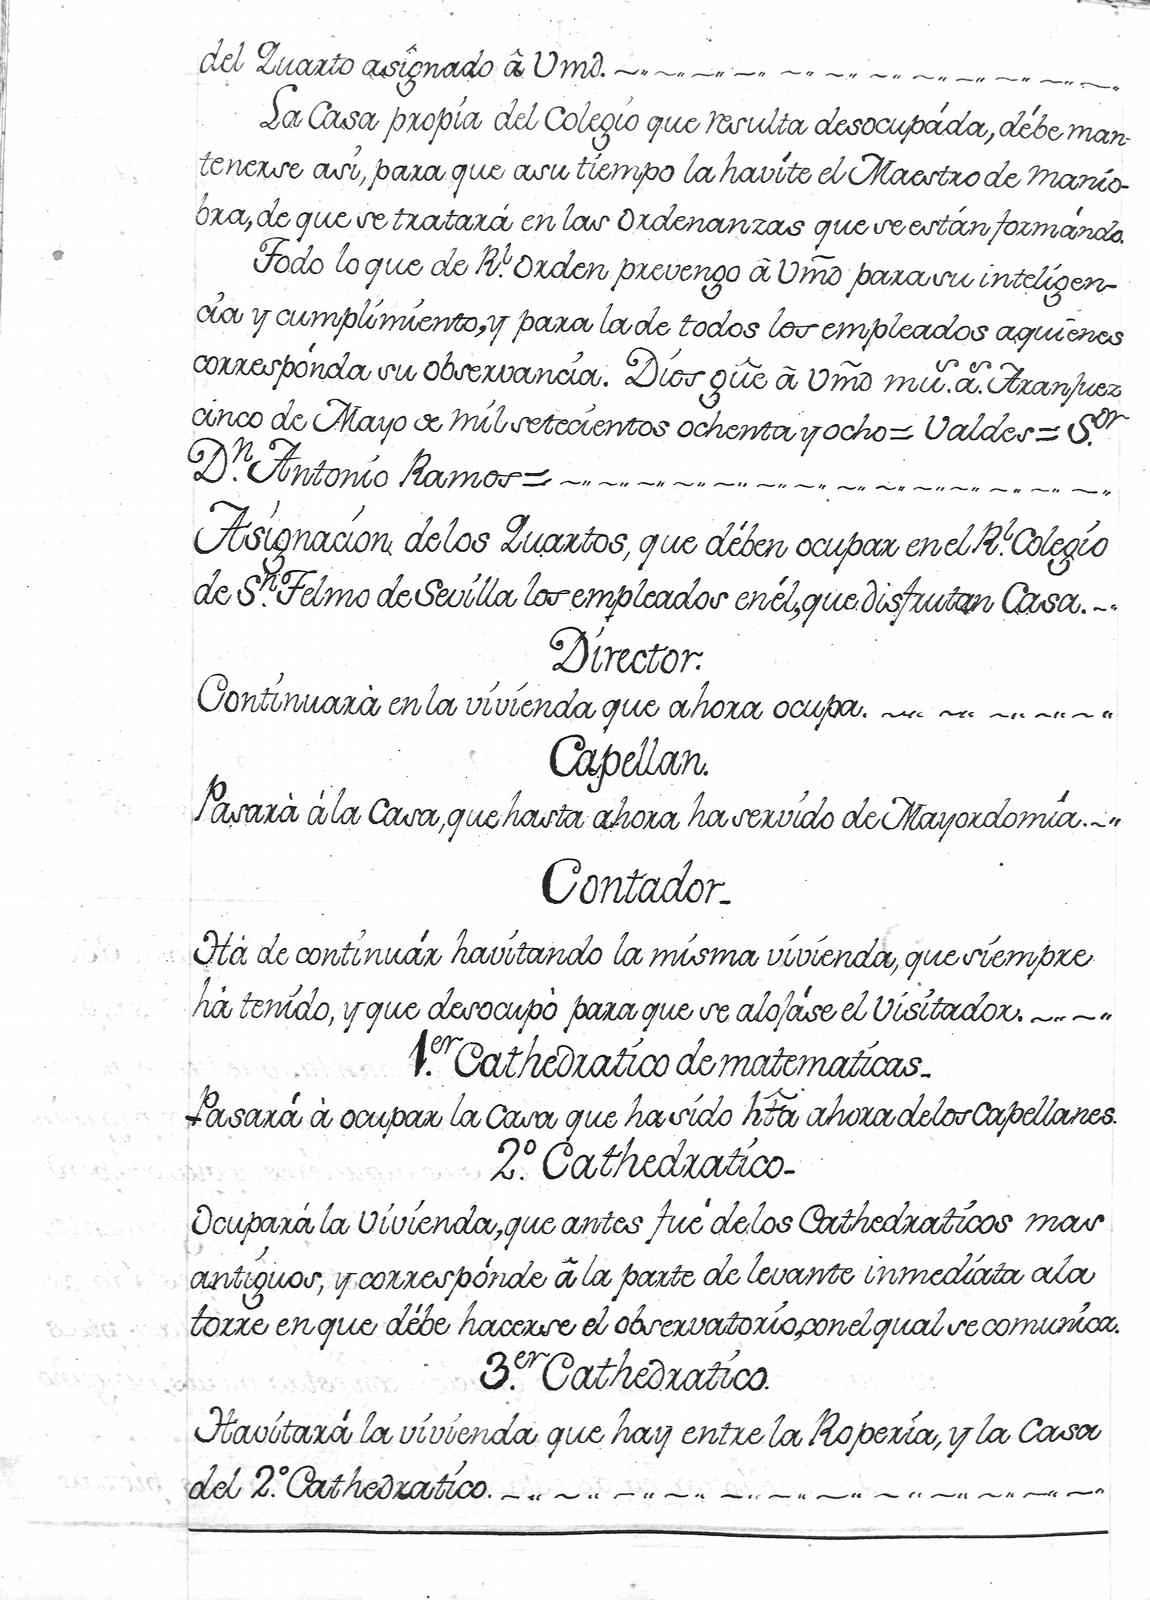 del Quarto asignado â Vmd.
La Casa propia del Colegio que resulta desocupáda, débe man-
tenerse asi, para que asu tiempo la havite el Maestro de Manio-
bra, de que se tratará en las Ordenanzas que se están formándo.
Todo lo que de Rl. Orden prevengo â Vmd para su inteligen-
cia y cumplimiento, y para la de todos los empleados aquienes
correspónda su observancia. Dios gũe â Vmd mũ.s a.s Aranjuez
cinco de Mayo de mil setecientos ochenta y ocho = Valdes = S.or
D.n Antonio Ramos =
Asignacion de los Quartos, que dében ocupar en el Rl. Colegio
de Sn. Telmo de Sevilla los empleados en él, que disfrutan Casa.
Director.
Continuarà en la vivienda que ahora ocupa.
Capellan.
Pasarà á la Casa, que hasta ahora ha servido de Mayordomía.
Contador
Hà de continuár havitando la misma vivienda, que siempre
hà tenido, y que desocupò para que se alojáse el Visitador.
1.er Cathedratico de matematicas
Pasará à ocupar la Casa que ha sido htâ ahora de los Capellanes.
2.o Cathedratico
Ocupará la Vivienda, que antes fué de los Cathedraticos mas
antiguos, y correspónde â la parte de levante inmediata ala
torre en que débe hacerse el observatorio, con el qual se comunica.
3.er Cathedratico.
Havitará la vivienda que hay entre la Roperia, y la Casa
del 2.o Cathedratico.